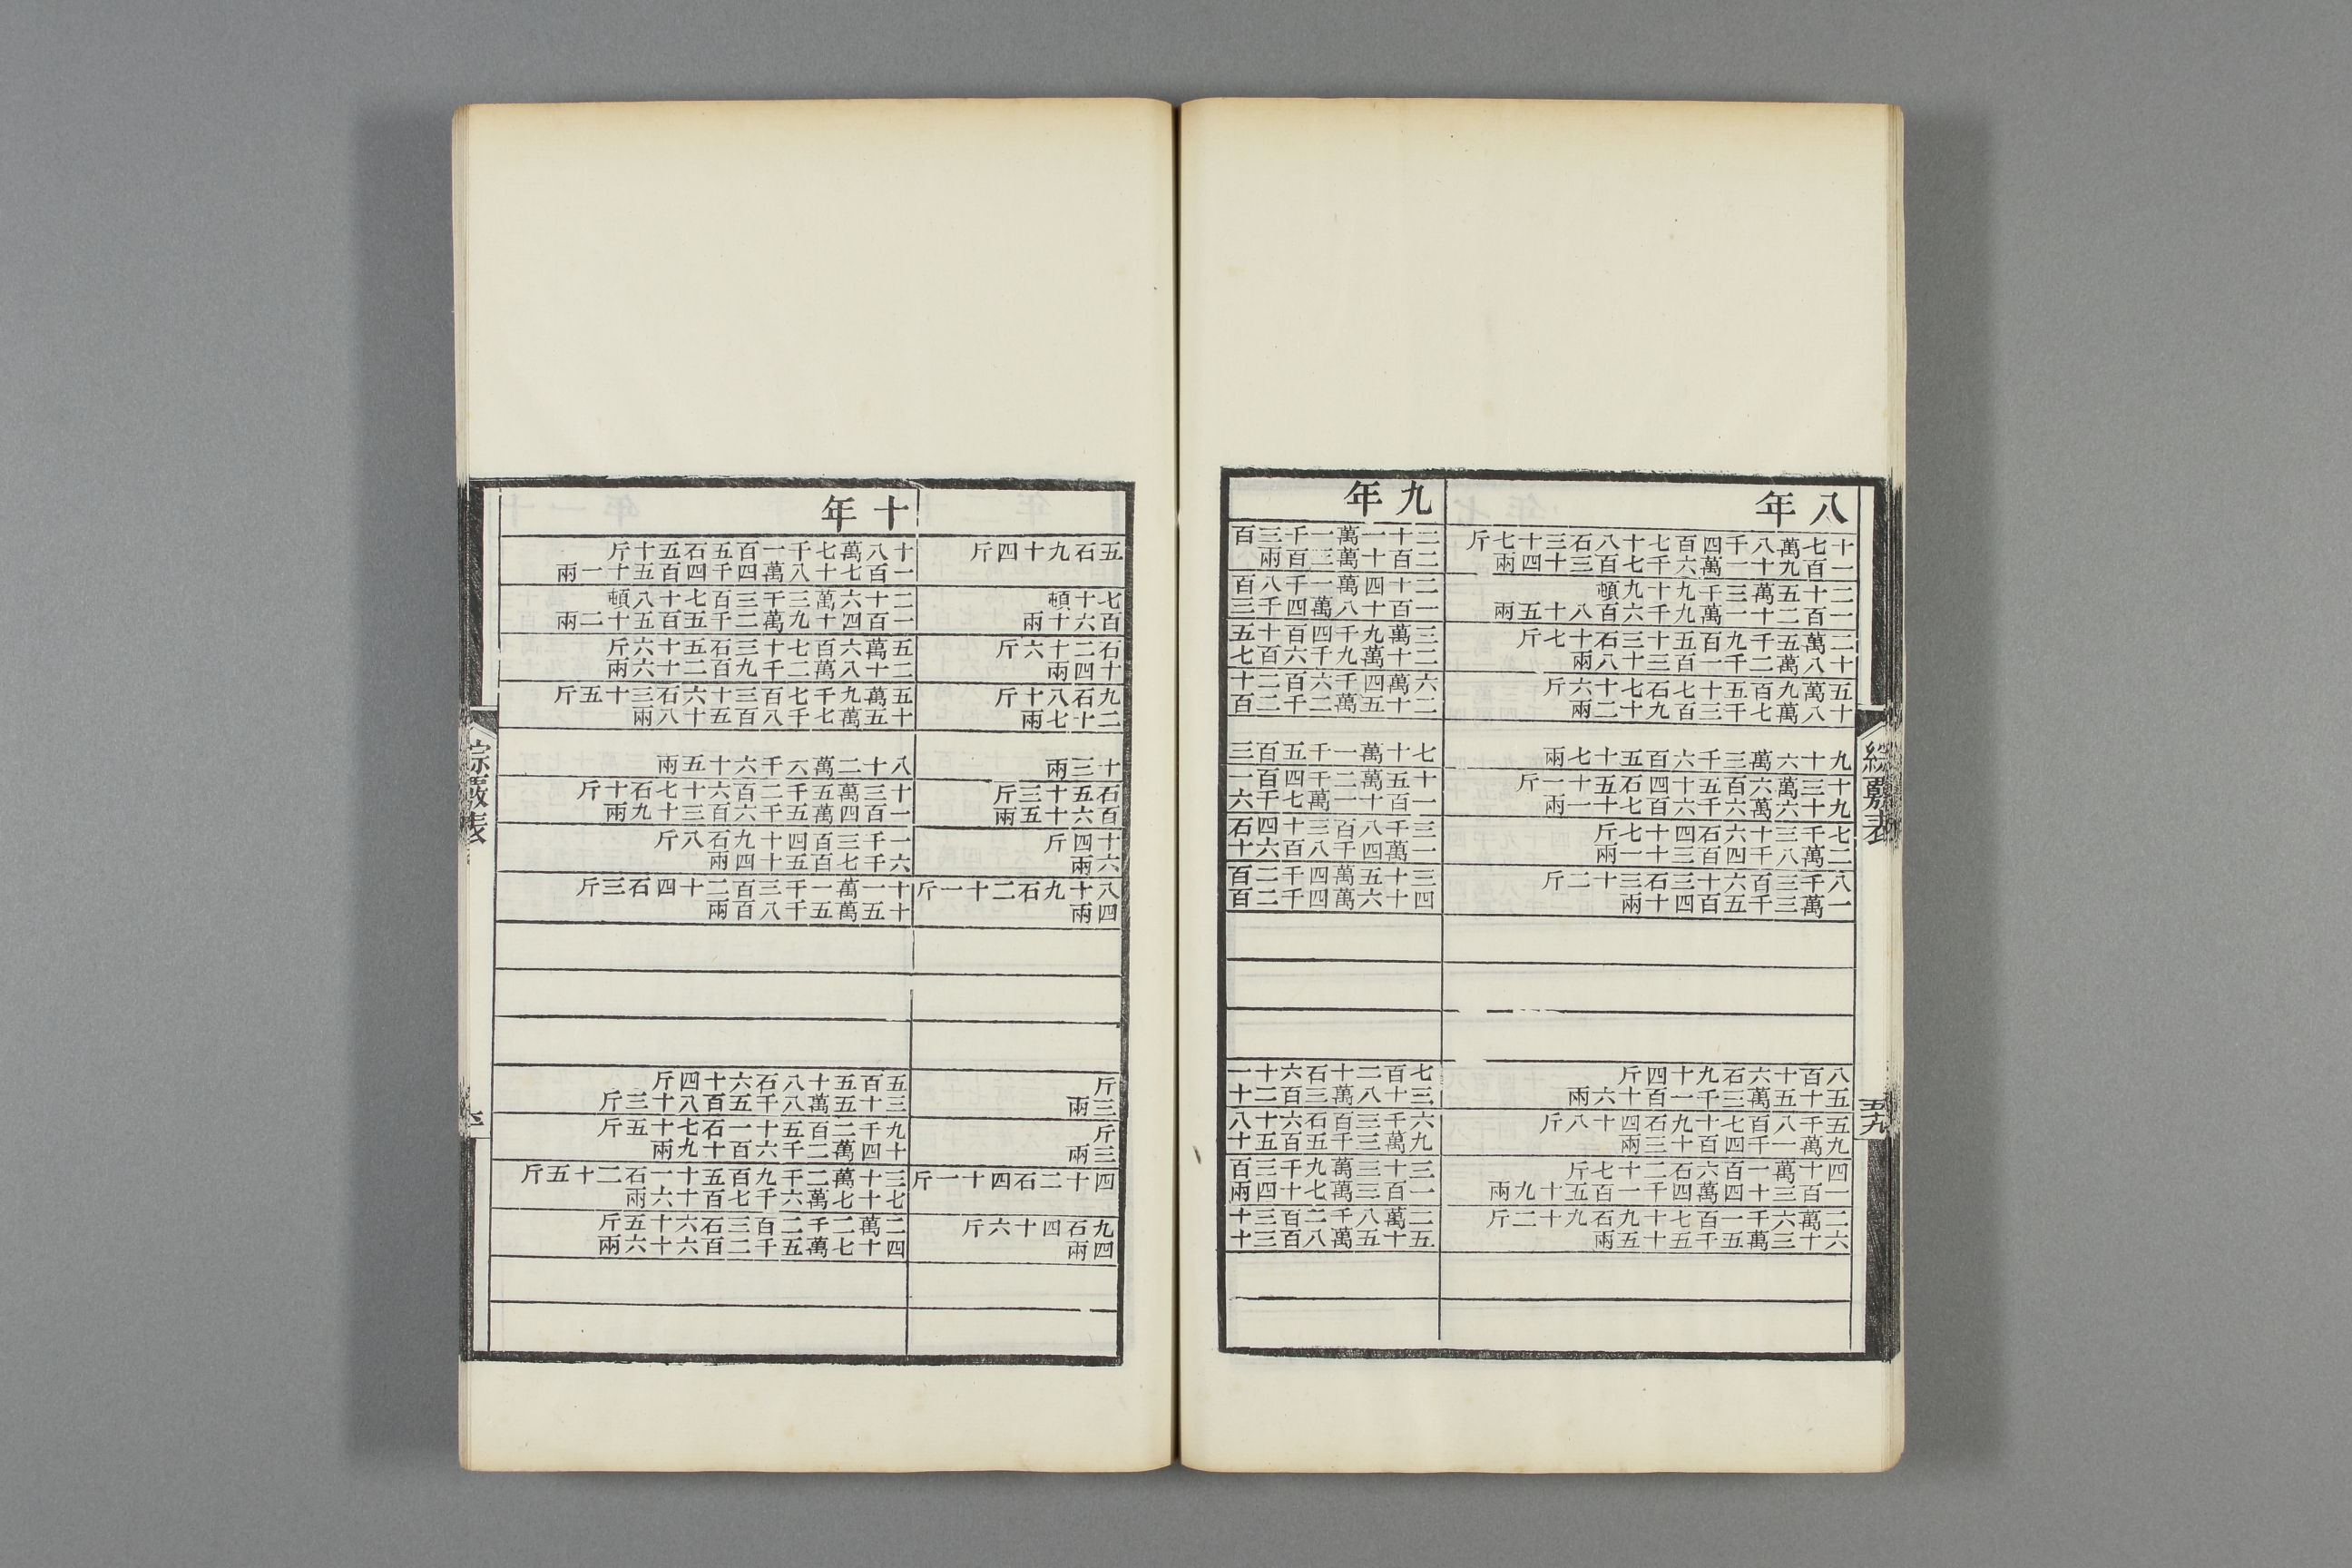 八年
十七萬八千四百七十八石三十七斤
一百九十一萬六千七百三十四兩
二十五萬三千九十九頓
一百二十一萬九千六百八十五兩
二萬五千九百五十三石十七斤
十八萬二千一百三十八兩
五萬九百五十七石七十六斤
十八萬七千三百九十二兩
九十六萬三千六百五十七兩
十三萬六百十四石五十一斤
九十六萬六千六百七十一兩
七千三十六石四十七斤
二萬八千四百三十一兩
八千三百六十三石三十二斤
一萬三千五百四十兩
八百十六石九十四斤
五十五萬三千一百十六兩
五千八百七十九石四十八斤
九萬一千四百十三兩
四十萬一百六石二十七斤
一百三十四萬四千一百五十九兩
二萬六千一百七十九石九十二斤
六十三萬五千五十五兩
九年
二十一萬一千三百
二百十萬三百兩
二十四萬一千八百
一百十八萬四千三
三萬九千四百十五
二十萬九千六百七
六萬四千六百二十
二十五萬二千二百
七十萬一千五百三
十五萬二千四百一
一百十一萬七千六
三千八百三十四石
一萬四千八百六十
三十五萬四千二百
四十六萬四千二百
七百二十石六十一
三十八萬三百二十
六千三百石六十八
九萬三千五百五十
三十三萬九千三百
一百三萬七十四兩
二萬八千二百三十
五十五萬八百三十
綜覈表
五九
五石九十四斤
七十頓
百六十兩
石二十六斤
十四兩
九石八十斤
二十七兩
十三兩
石五十三斤
百六十五兩
十四斤
六兩
八十九石二十一斤
四兩
斤
三兩
斤
三兩
四十二石四十一斤
九石四十六斤
四兩
十年
十八萬七千一百五石五十斤
一百七十八萬四千四百五十一兩
二十六萬三千三百七十八頓
一百四十九萬二千五百五十二兩
五萬六百七十三石五十六斤
二十八萬二千九百二十六兩
五萬九千七百三十六石三十五斤
十五萬七千八百五十八兩
八十二萬六千六十五兩
十三萬五千二百六十七石十斤
一百四萬五千六百三十九兩
一千三百四十九石八斤
六千七百五十四兩
十一萬一千三百二十四石三斤
十五萬五千八百兩
五百五十八石六十四斤
三十五萬八千五百八十三斤
九千二百五十一石七十五斤
十四萬二千六百十九兩
三十萬二千九百五十一石二十五斤
七十七萬六千七百十六兩
二萬二千二百三石六十五斤
四十七萬五千二百六十六兩
綜覈表